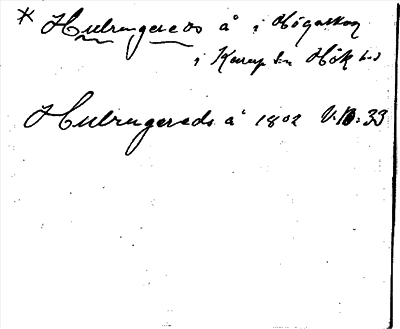 * Hulrugereds å i Högaskog
i Karup sn Hök hd
Hulrugereds å 1802 V:B:33